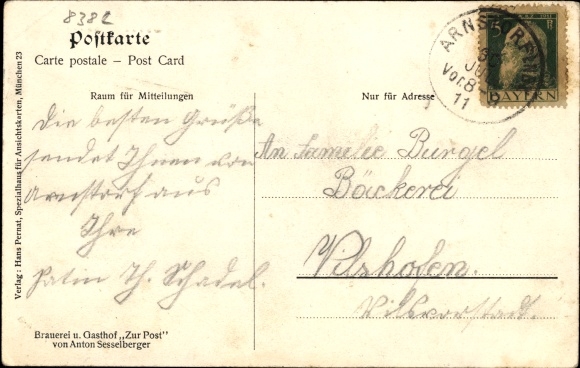 8382
Postkarte
Carte postale – Post Card
Raum für Mitteilungen
Nur für Adresse
Die besten Grüße
sendet Ihnen von
Arnstorf aus
Ihre
Patin Th. Schadel.
An Familie Burgel
Bäckerei
Vilshofen.
Vilsvorstadt.
ARNSTORF
JUL
Vor. 8-9
11
5
BAYERN
Verlag: Hans Pernat, Spezialhaus für Ansichtskarten, München 23
Brauerei u. Gasthof „Zur Post"
von Anton Sesselberger